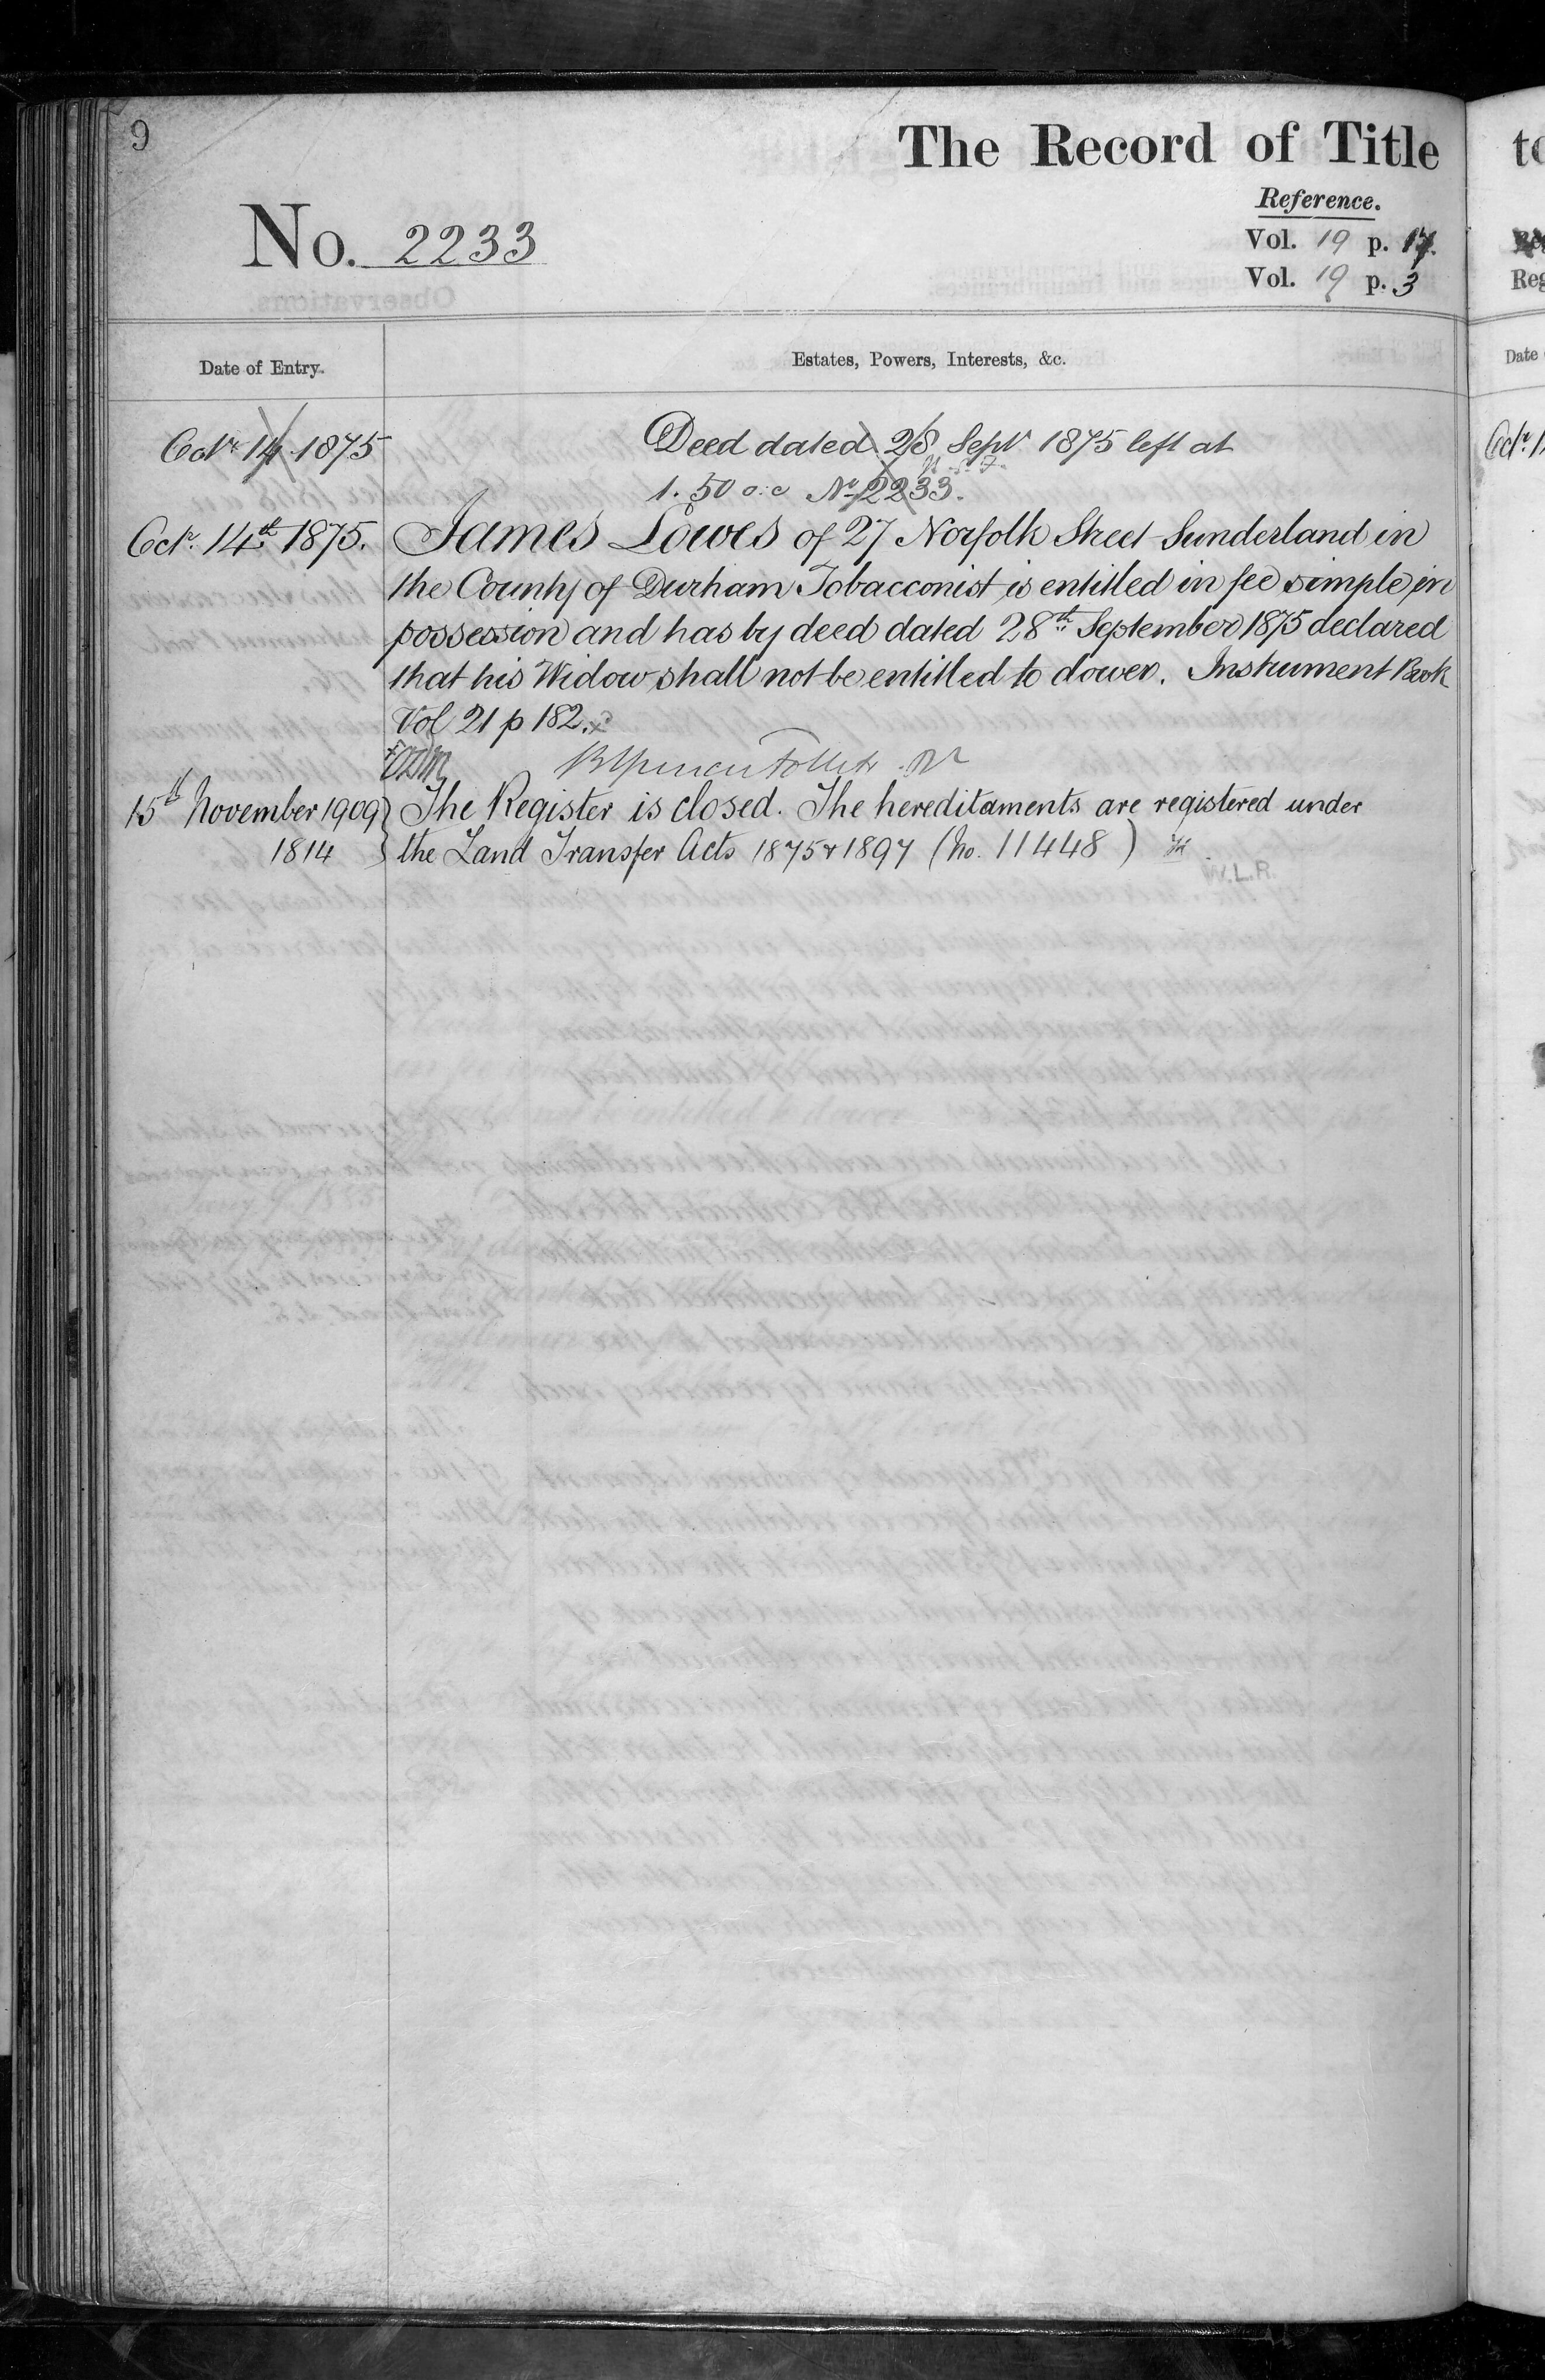 9
The Record of Title
Reference.
No. 2233
Vol. 19 p. 17.
Vol. 19 p. 3
Date of Entry.
Estates, Powers, Interests, &c.
Octr 14 1875
Deed dated 28 Septr 1875 left at
1.50 o.c Nº 2233.
Octr. 14th 1875.
James Lowes of 27 Norfolk Street Sunderland in
the County of Durham Tobacconist is entitled in fee simple in
possession and has by deed dated 28th September 1875 declared
that his Widow shall not be entitled to dower. Instrument Book
Vol 21 p 182.
15th November 1909
The Register is closed. The hereditaments are registered under
1814
the Land Transfer Acts 1875 & 1897 (No. 11448)
W.L.R.
to
Reg
Date
Octr. 1